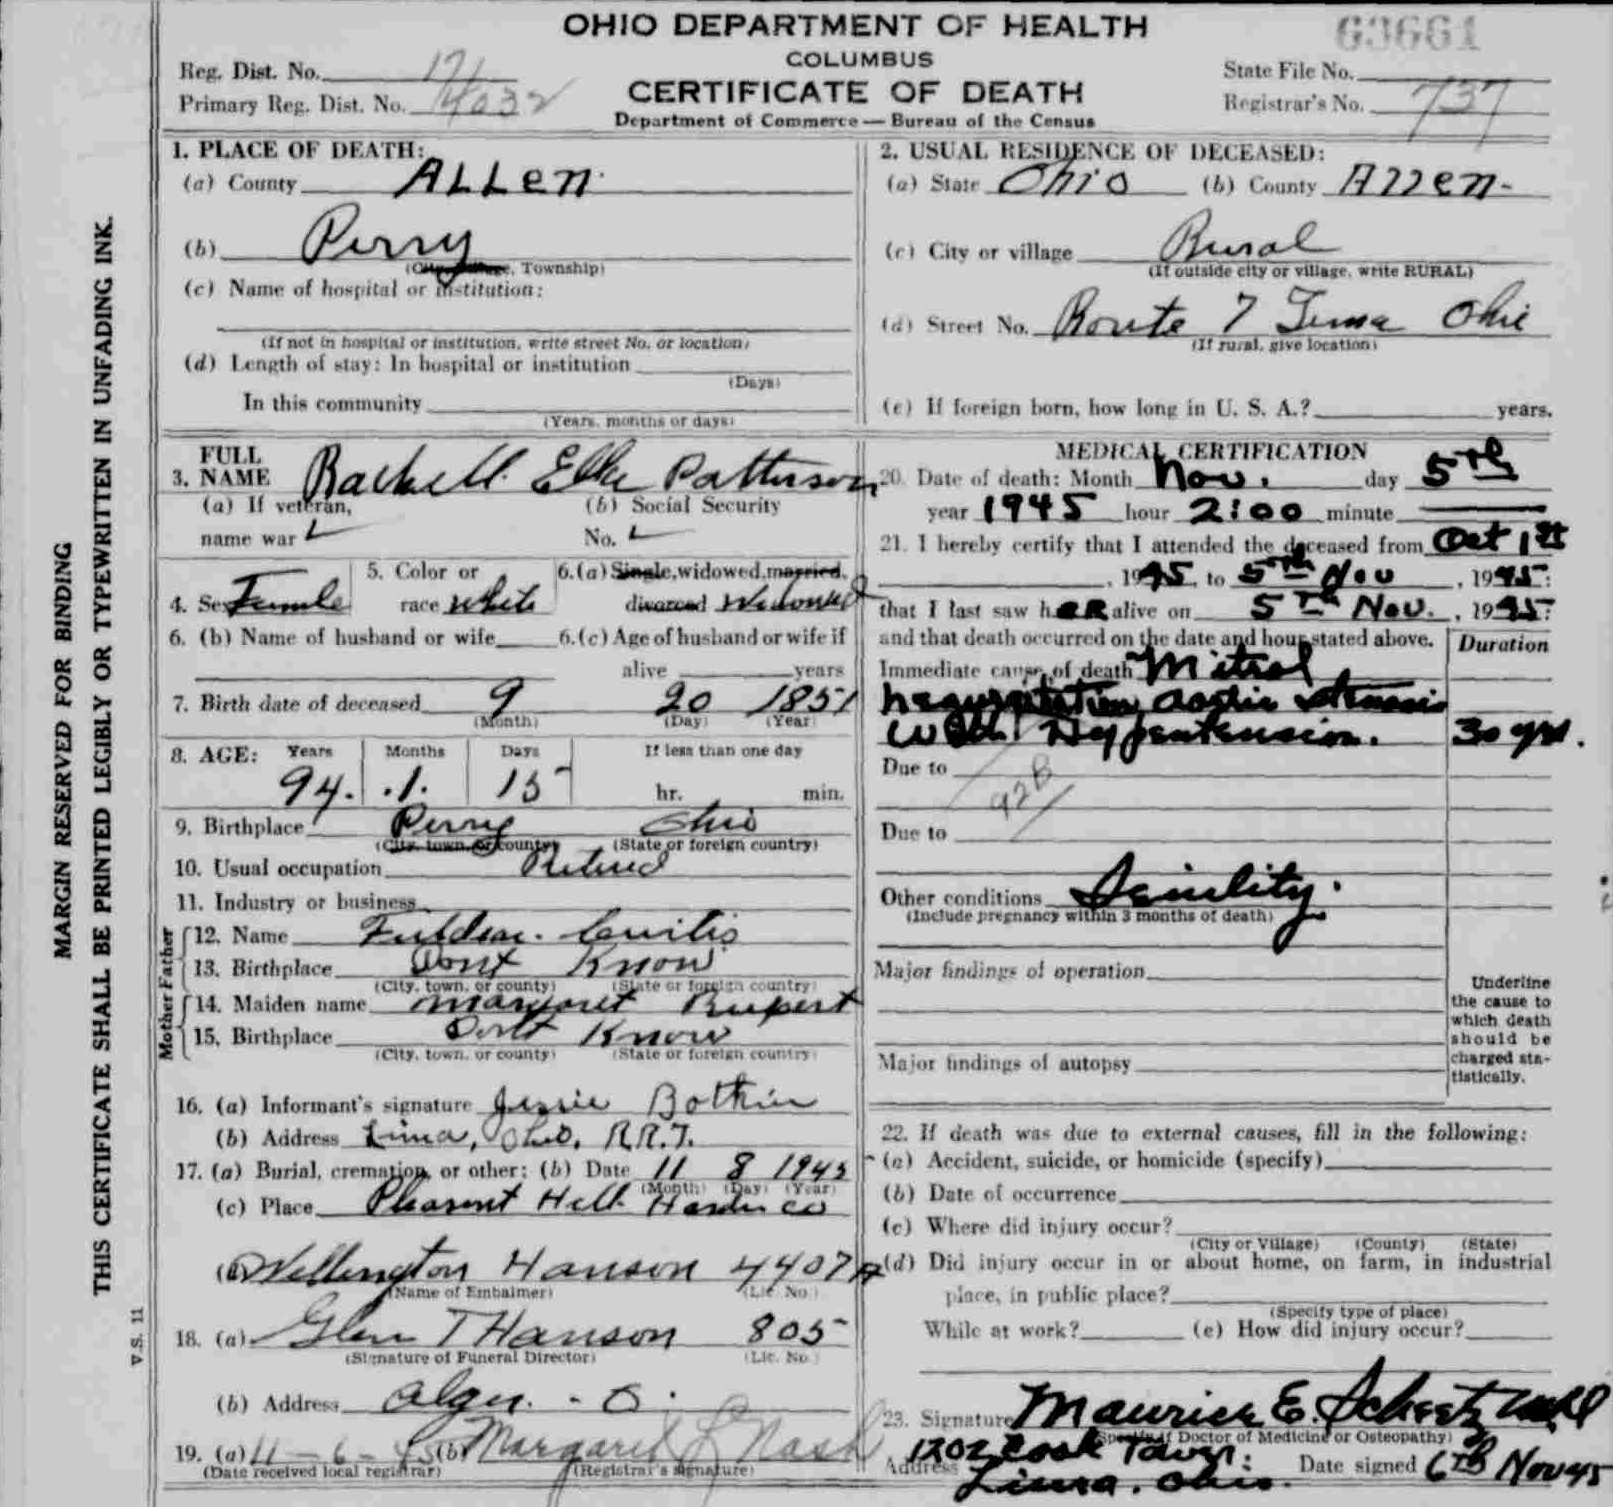 OHIO DEPARTMENT OF HEALTH
COLUMBUS
CERTIFICATE OF DEATH
Department of Commerce — Bureau of the Census
63661
Reg. Dist. No. 171
Primary Reg. Dist. No. 4032
State File No.
Registrar's No. 737
MARGIN RESERVED FOR BINDING
THIS CERTIFICATE SHALL BE PRINTED LEGIBLY OR TYPEWRITTEN IN UNFADING INK.
V.S. 11
1. PLACE OF DEATH:
(a) County ALLen
(b) Perry
(City, village, Township)
(c) Name of hospital or institution:
(If not in hospital or institution, write street No. or location)
(d) Length of stay: In hospital or institution
(Days)
In this community
(Years, months or days)
2. USUAL RESIDENCE OF DECEASED:
(a) State Ohio (b) County Allen
(c) City or village Rural
(If outside city or village, write RURAL)
(d) Street No. Route 7 Lima Ohio
(If rural, give location)
(e) If foreign born, how long in U. S. A.? years.
3. FULL NAME Rachell Ella Patterson
(a) If veteran, name war
(b) Social Security No.
4. Sex Female
5. Color or race White
6. (a) Single, widowed, married, divorced Widowed
6. (b) Name of husband or wife
6. (c) Age of husband or wife if alive years
7. Birth date of deceased 9 20 1851
(Month) (Day) (Year)
8. AGE: Years Months Days If less than one day
94. 1. 15 hr. min.
9. Birthplace Perry Ohio
(City, town, or county) (State or foreign country)
10. Usual occupation Retired
11. Industry or business
Father
12. Name Curtis
13. Birthplace Dont Know
(City, town, or county) (State or foreign country)
Mother
14. Maiden name Margaret Rupert
15. Birthplace Dont Know
(City, town, or county) (State or foreign country)
16. (a) Informant's signature Jessie Botkin
(b) Address Lima, Ohio, R.R.7.
17. (a) Burial, cremation, or other: (b) Date 11 8 1945
(Month) (Day) (Year)
(c) Place Pleasant Hill Hardin Co
Wellington Hanson 4407A
(Name of Embalmer) (Lic. No.)
18. (a) Glen T Hanson 805
(Signature of Funeral Director) (Lic. No.)
(b) Address Alger - O.
19. (a) 11-6-45 (b) Margaret L Nash
(Date received local registrar) (Registrar's signature)
MEDICAL CERTIFICATION
20. Date of death: Month Nov. day 5th
year 1945 hour 2:00 minute
21. I hereby certify that I attended the deceased from Oct 1st
, 1945, to 5th Nov, 1945;
that I last saw her alive on 5th Nov., 1945;
and that death occurred on the date and hour stated above.
Duration
Immediate cause of death Mitral
Regurgitation, aortic stenosis
with Hypertension. 30 yrs.
Due to
92B
Due to
Other conditions Senility.
(Include pregnancy within 3 months of death)
Major findings of operation
Major findings of autopsy
Underline
the cause to
which death
should be
charged sta-
tistically.
22. If death was due to external causes, fill in the following:
(a) Accident, suicide, or homicide (specify)
(b) Date of occurrence
(c) Where did injury occur?
(City or Village) (County) (State)
(d) Did injury occur in or about home, on farm, in industrial
place, in public place?
(Specify type of place)
While at work? (e) How did injury occur?
23. Signature Maurice E. Scheetz
(Specify if Doctor of Medicine or Osteopathy)
Address 1202 Cook Tower:
Lima. Ohio.
Date signed 6th Nov 45